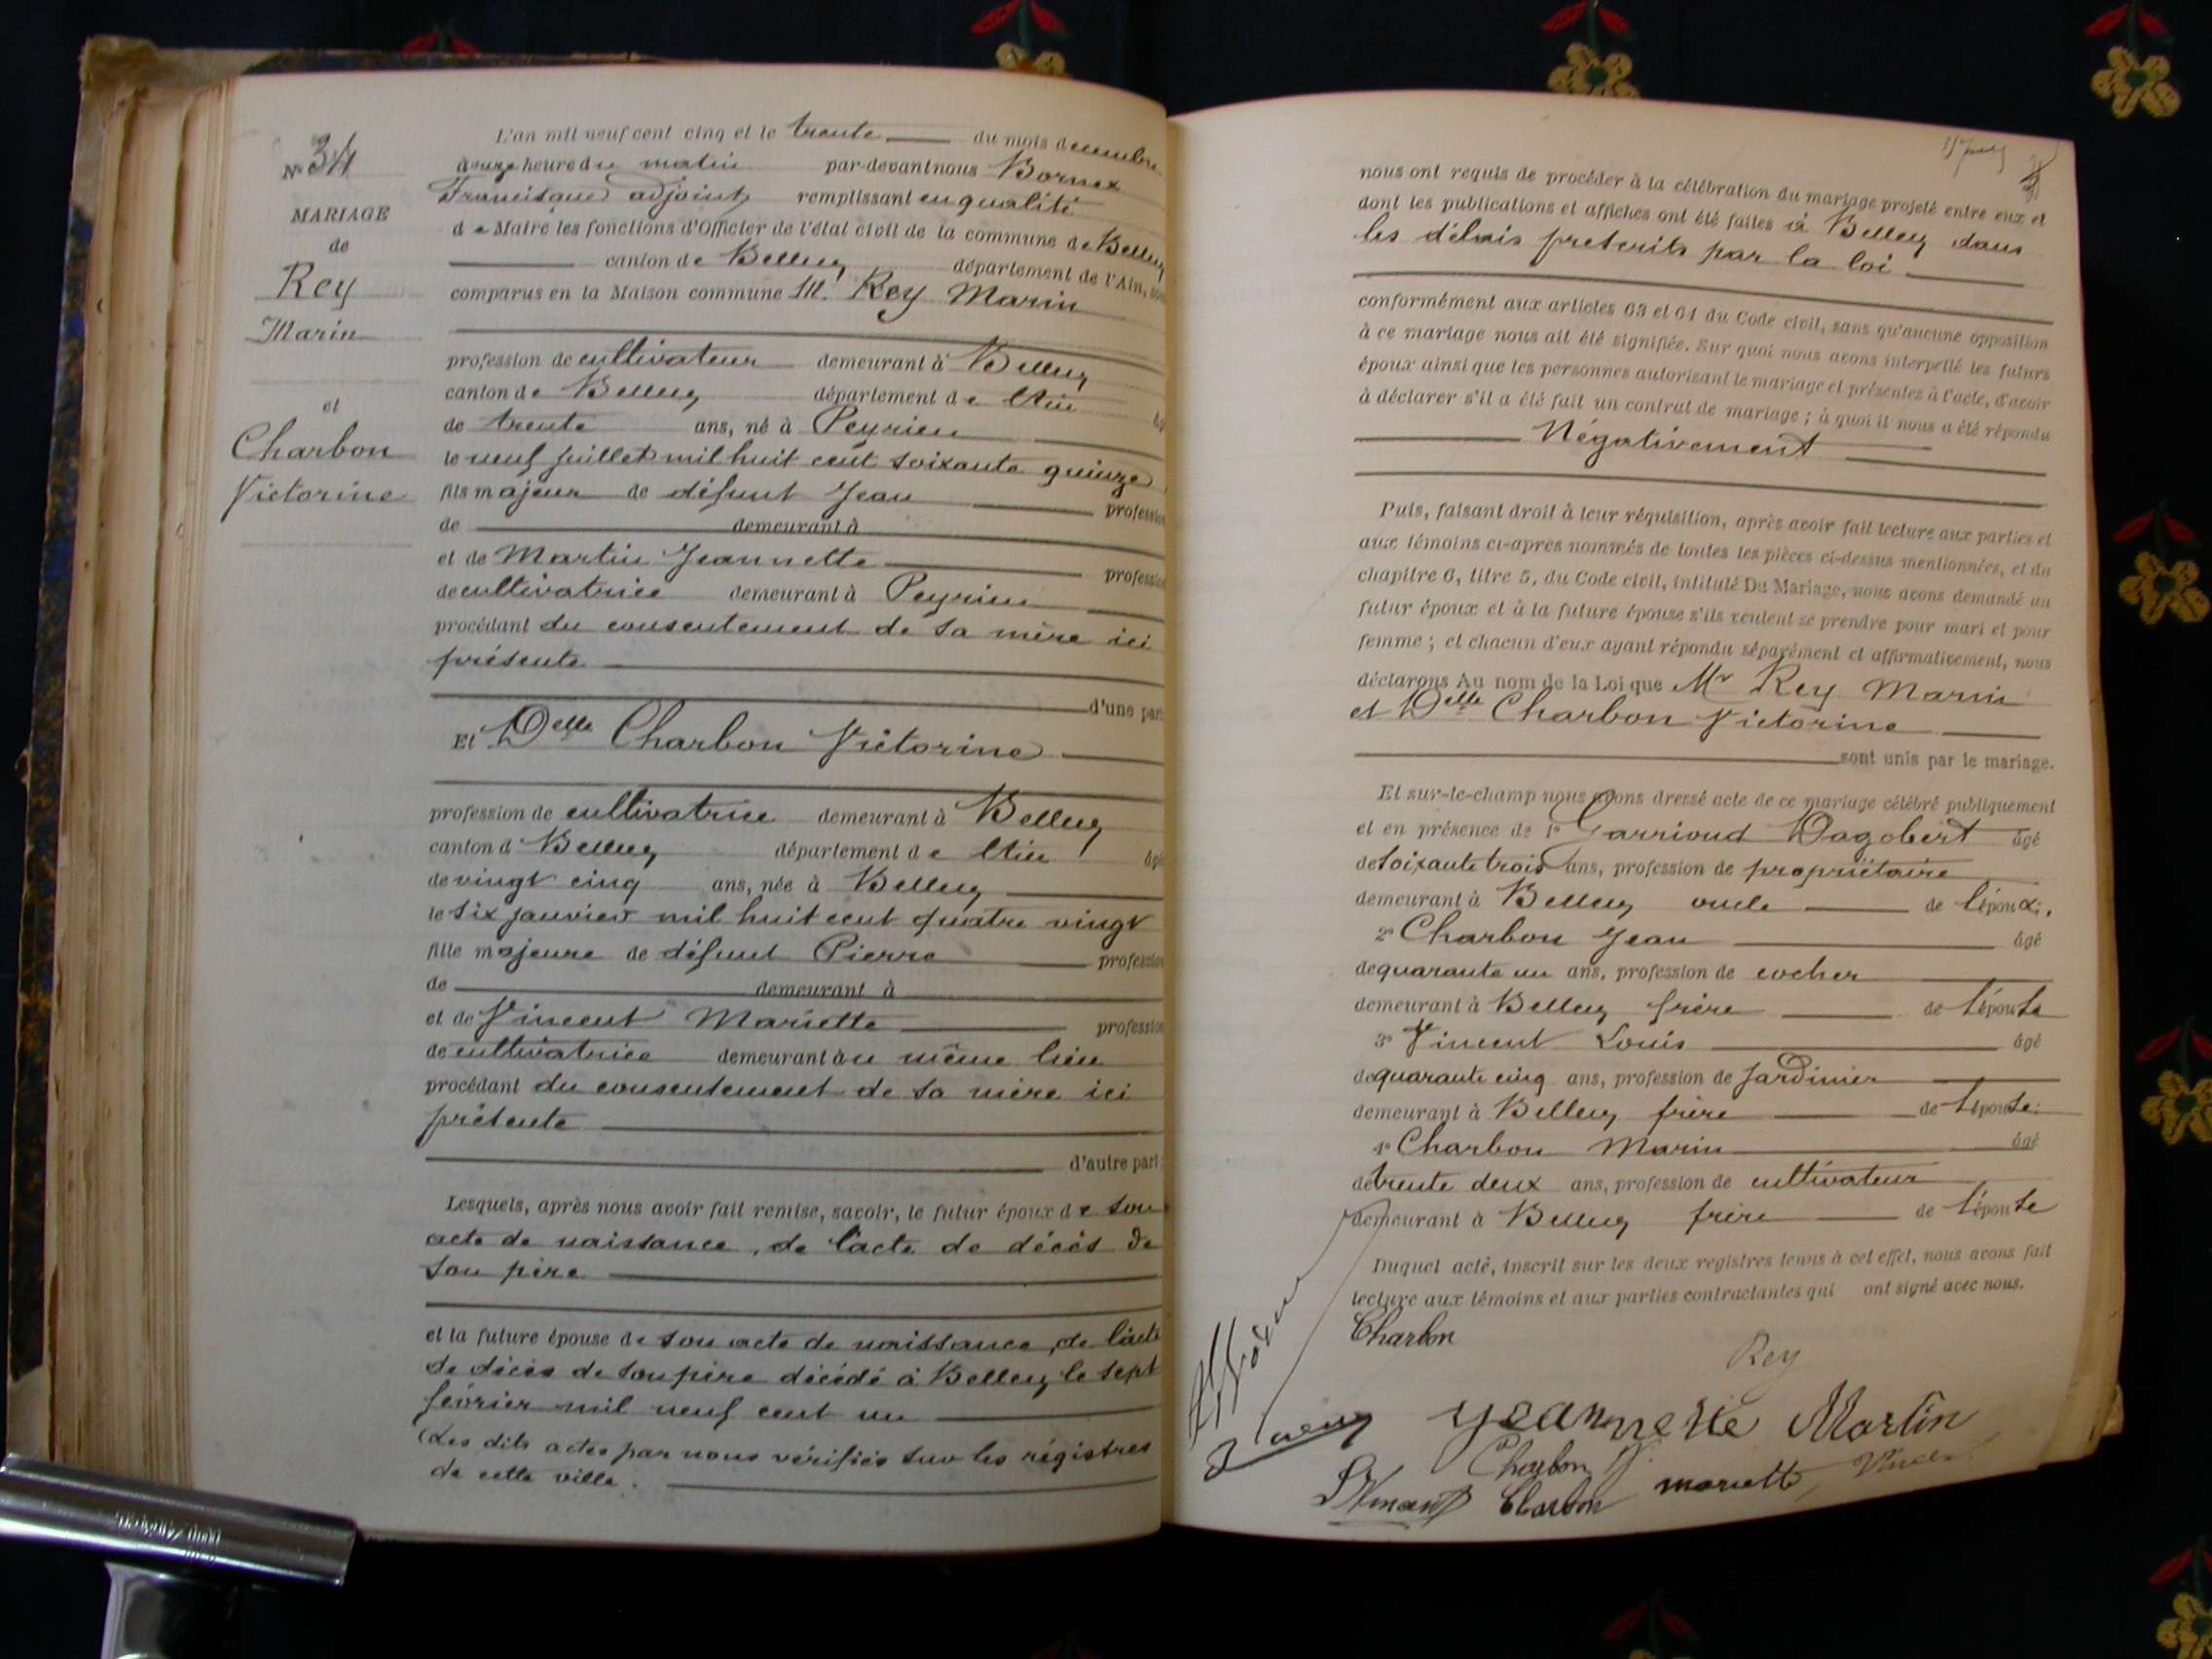 L'an mil neuf cent cinq et le trente du mois decembre
à onze heure du matin par-devant nous Bornex
Francisque adjoint remplissant en qualité
de Maire les fonctions d'Officier de l'état civil de la commune de Belley
canton de Belley département de l'Ain, sont
comparus en la Maison commune M. Rey Marin
profession de cultivateur demeurant à Belley
canton de Belley département de l'Ain âgé
de trente ans, né à Peyrieu
le neuf juillet mil huit cent soixante quinze
fils majeur de défunt Jean profession
de demeurant à
et de Martin Jeannette profession
de cultivatrice demeurant à Peyrieu
procédant du consentement de sa mère ici
présente
d'une part
Et Delle Charbon Victorine
profession de cultivatrice demeurant à Belley
canton d Belley département de l'Ain âgée
de vingt cinq ans, née à Belley
le six janvier mil huit cent quatre vingt
fille majeure de défunt Pierre profession
de demeurant à
et de Vincent Mariette profession
de cultivatrice demeurant au même lieu
procédant du consentement de sa mère ici
présente
d'autre part
Lesquels, après nous avoir fait remise, savoir, le futur époux de son
acte de naissance, de l'acte de décès de
son père
et la future épouse de son acte de naissance, de l'acte
de décès de son père décédé à Belley le sept
février mil neuf cent un
Les dits actes par nous vérifiés sur les régistres
de cette ville.
N° 34
MARIAGE
de
Rey
Marin
et
Charbon
Victorine
nous ont requis de procéder à la célébration du mariage projeté entre eux et
dont les publications et affiches ont été faites à Belley dans
les délais prescrits par la loi
conformément aux articles 63 et 64 du Code civil, sans qu'aucune opposition
à ce mariage nous ait été signifiée. Sur quoi nous avons interpellé les futurs
époux ainsi que les personnes autorisant le mariage et présentes à l'acte, d'avoir
à déclarer s'il a été fait un contrat de mariage ; à quoi il nous a été répondu
Négativement
Puis, faisant droit à leur réquisition, après avoir fait lecture aux parties et
aux témoins ci-après nommés de toutes les pièces ci-dessus mentionnées, et du
chapitre 6, titre 5, du Code civil, intitulé Du Mariage, nous avons demandé au
futur époux et à la future épouse s'ils veulent se prendre pour mari et pour
femme ; et chacun d'eux ayant répondu séparément et affirmativement, nous
déclarons Au nom de la Loi que Mr Rey Marin
et Delle Charbon Victorine
sont unis par le mariage.
Et sur-le-champ nous avons dressé acte de ce mariage célébré publiquement
et en présence de 1° Garrioud Dagobert âgé
de soixante trois ans, profession de propriétaire
demeurant à Belley oncle de l'époux.
2° Charbon Jean âgé
de quarante un ans, profession de cocher
demeurant à Belley frère de l'épouse
3° Vincent Louis âgé
de quarante cinq ans, profession de Jardinier
demeurant à Belley frère de l'épouse
4° Charbon Marin âgé
de trente deux ans, profession de cultivateur
demeurant à Belley frère de l'épouse
Duquel acte, inscrit sur les deux registres tenus à cet effet, nous avons fait
lecture aux témoins et aux parties contractantes qui ont signé avec nous.
Charbon
Rey
Jeannette Martin
Charbon
mariette Vincent
Charbon